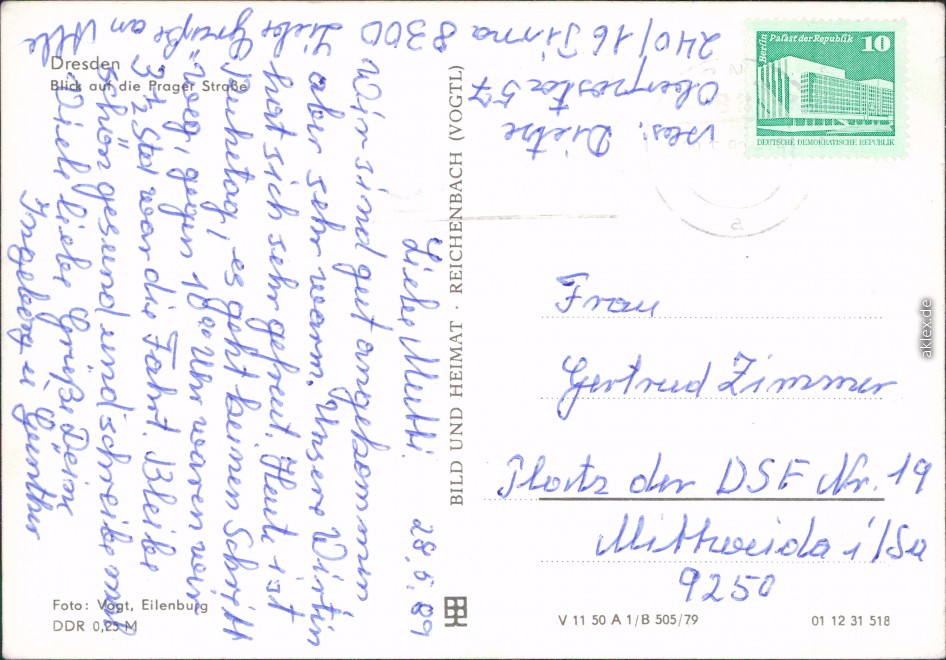 Dresden
Blick auf die Prager Straße
Liebe Mutti! 28.5.89
Wir sind gut angekommen
aber sehr warm. Unsere Wirtin
hat sich sehr gefreut. Heute ist
Ruhetag, es geht keinen Schritt
weg, gegen 10 00 Uhr waren wir
3 1/2 Std war die Fahrt. Bleibe
schön gesund und schreibe mal
Viele liebe Grüße Deine
Ingeborg u Günther
Liebe Grüße an Alle
Abs. Dietze
Oberposta 57
240/16 Pirna 8300
BILD UND HEIMAT · REICHENBACH (VOGTL)
Berlin
Palast der Republik
10
DEUTSCHE DEMOKRATISCHE REPUBLIK
Frau
Gertrud Zimmer
Platz der DSF Nr. 19
Mittweida i/Sa
9250
Foto: Vogt, Eilenburg
DDR 0,25 M
V 11 50 A 1/B 505/79
01 12 31 518
aklex.de